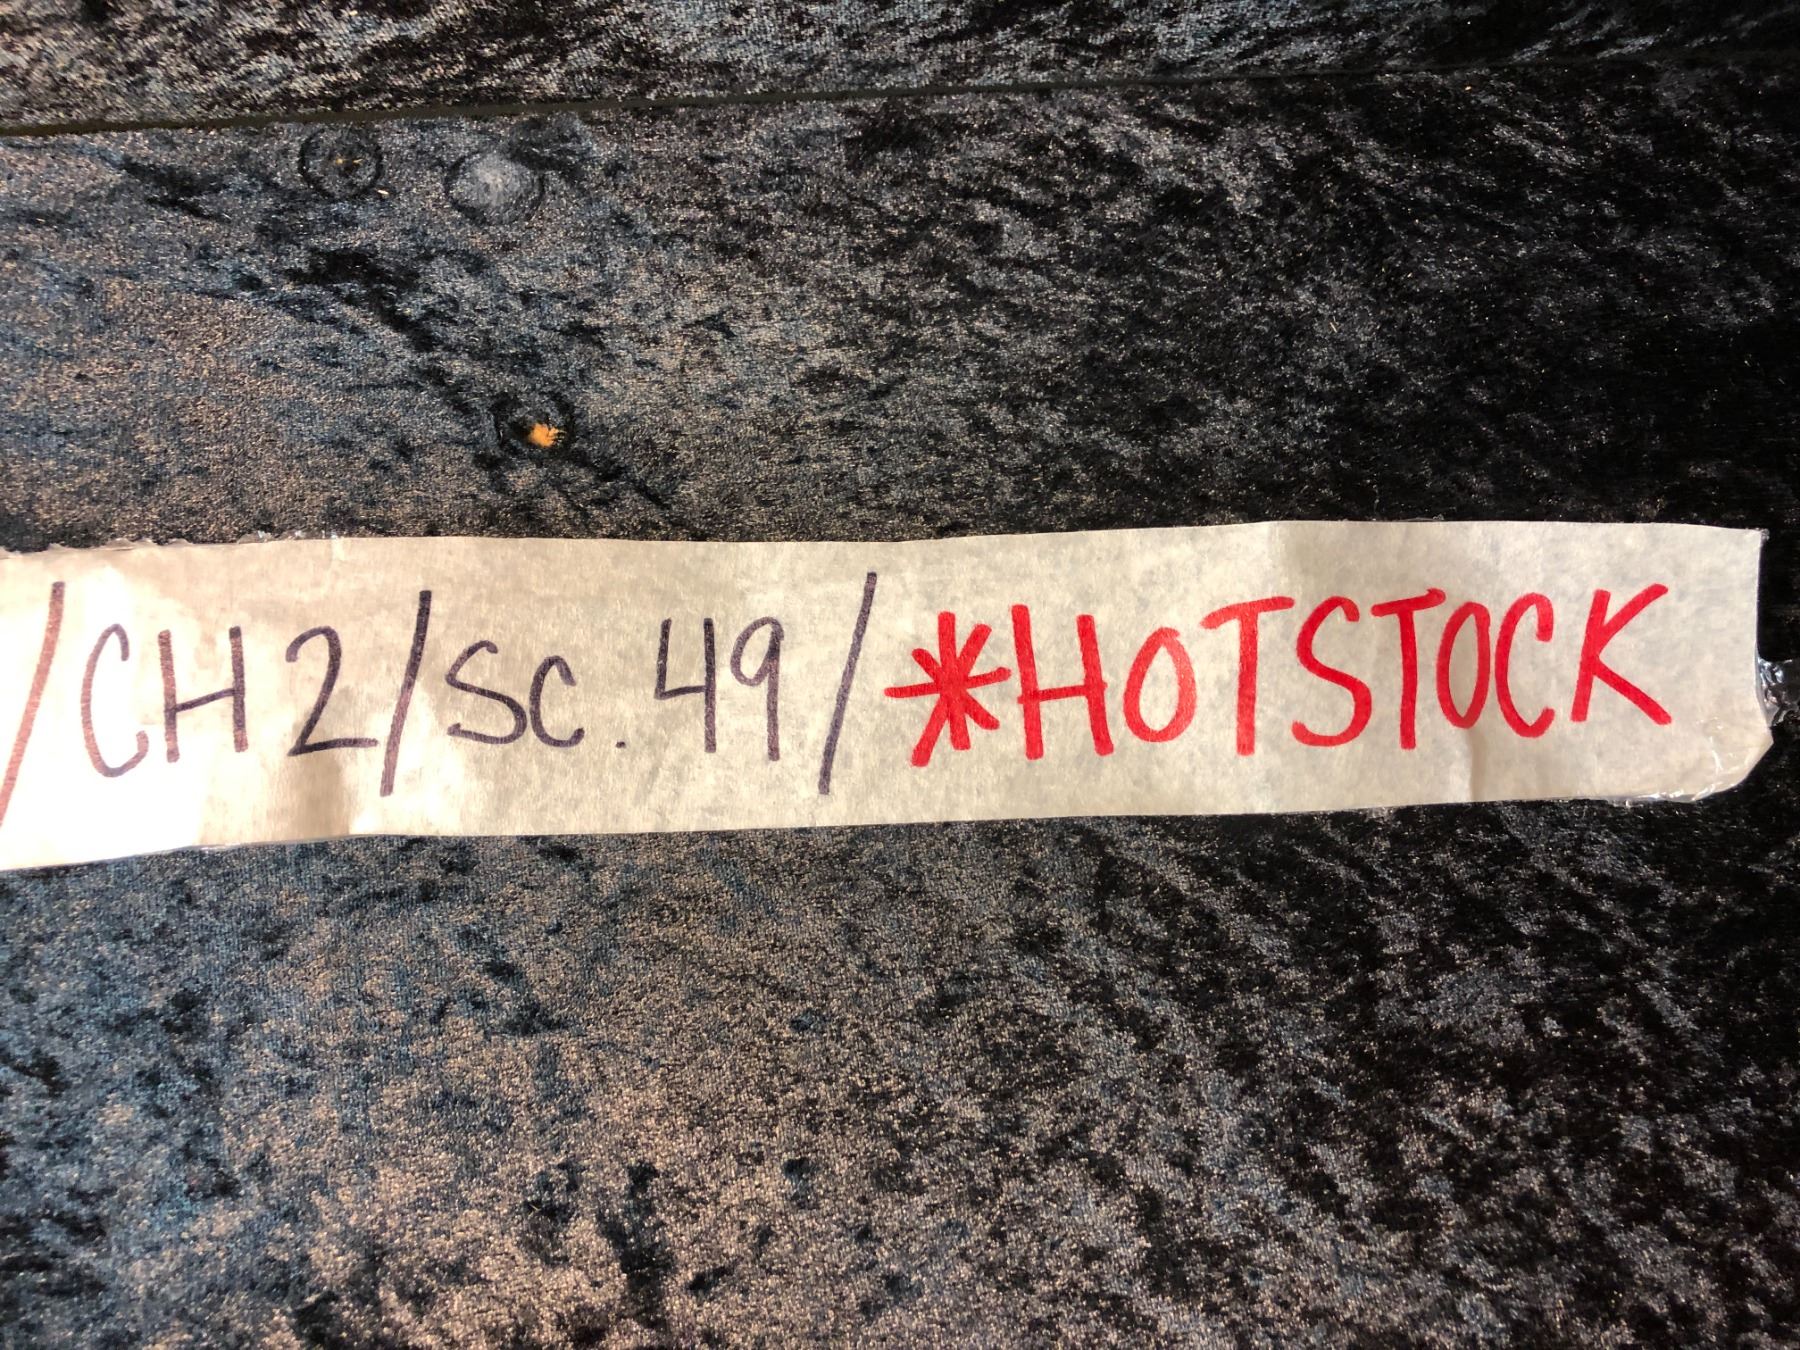 /CH 2/SC. 49/*HOTSTOCK